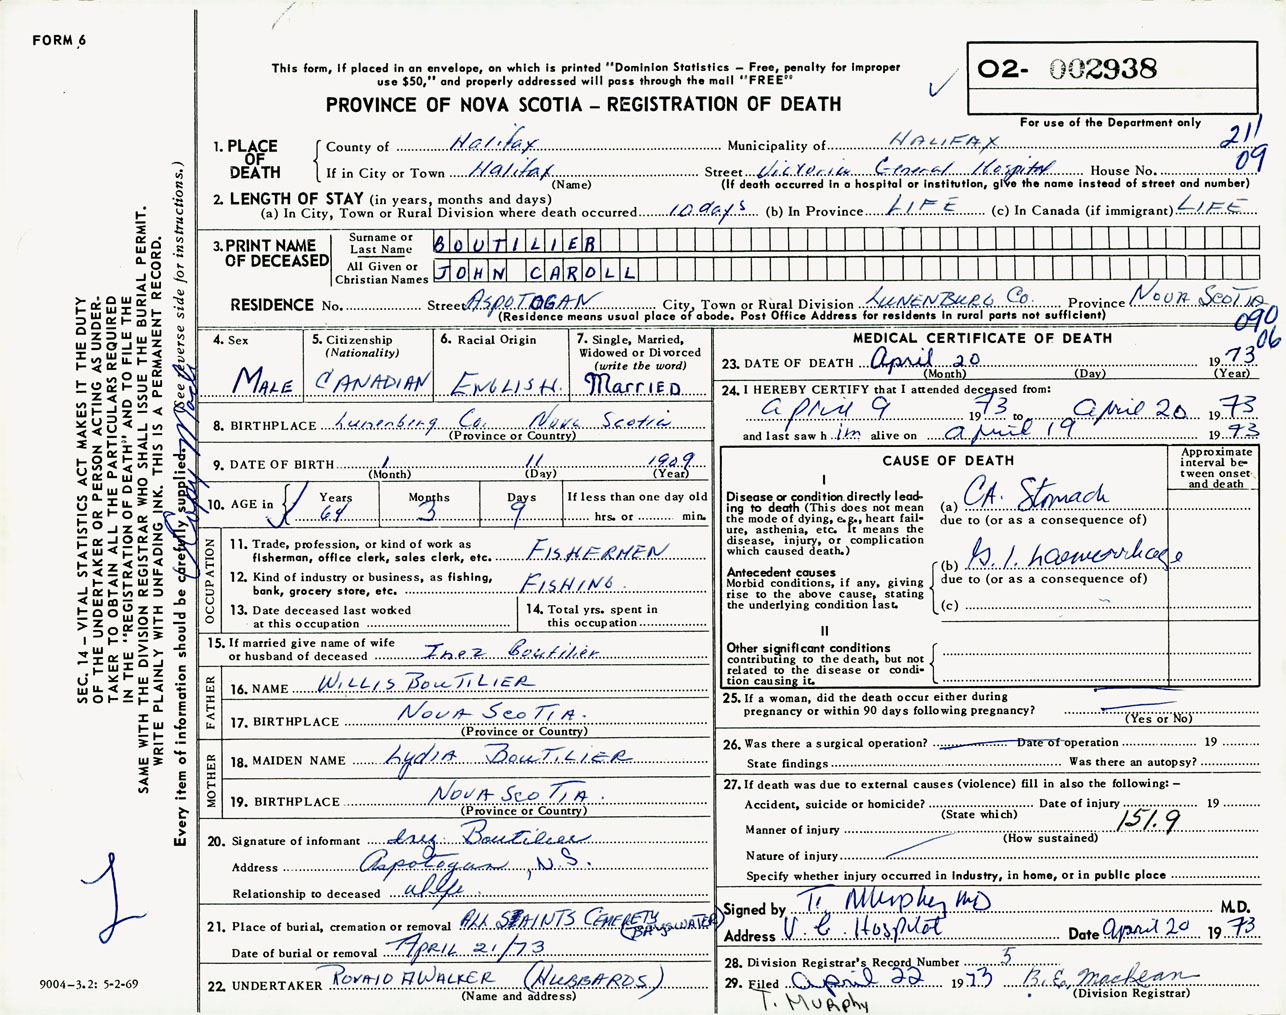 FORM 6
This form, if placed in an envelope, on which is printed "Dominion Statistics – Free, penalty for improper
use $50," and properly addressed will pass through the mail "FREE"
O2- 002938
PROVINCE OF NOVA SCOTIA – REGISTRATION OF DEATH
For use of the Department only
211
09
1. PLACE OF DEATH
County of Halifax Municipality of HALIFAX
If in City or Town Halifax Street Victoria General Hospital House No.
(Name) (If death occurred in a hospital or institution, give the name instead of street and number)
2. LENGTH OF STAY (in years, months and days)
(a) In City, Town or Rural Division where death occurred 10 days (b) In Province LIFE (c) In Canada (if immigrant) LIFE
3. PRINT NAME OF DECEASED
Surname or Last Name BOUTILIER
All Given or Christian Names JOHN CAROLL
RESIDENCE No. Street ASPOTOGAN City, Town or Rural Division LUNENBURG CO. Province NOVA SCOTIA
(Residence means usual place of abode. Post Office Address for residents in rural parts not sufficient)
090
06
4. Sex
MALE
5. Citizenship
(Nationality)
CANADIAN
6. Racial Origin
ENGLISH.
7. Single, Married,
Widowed or Divorced
(write the word)
Married
8. BIRTHPLACE Lunenberg Co. Nova Scotia
(Province or Country)
9. DATE OF BIRTH 1 11 1909
(Month) (Day) (Year)
10. AGE in
Years Months Days If less than one day old
64 3 9 hrs. or min.
OCCUPATION
11. Trade, profession, or kind of work as
fisherman, office clerk, sales clerk, etc. FISHERMEN
12. Kind of industry or business, as fishing,
bank, grocery store, etc. FISHING.
13. Date deceased last worked
at this occupation
14. Total yrs. spent in
this occupation
15. If married give name of wife
or husband of deceased Inez Boutilier
FATHER
16. NAME WILLIS BOUTILIER
17. BIRTHPLACE NOVA SCOTIA.
(Province or Country)
MOTHER
18. MAIDEN NAME LYDIA BOUTILIER
19. BIRTHPLACE NOVA SCOTIA.
(Province or Country)
20. Signature of informant Inez Boutilier
Address Aspotogan, N.S.
Relationship to deceased wife.
21. Place of burial, cremation or removal ALL SAINTS CEMERETY (BAYSWATER)
Date of burial or removal APRIL 21/73
22. UNDERTAKER RONALD A WALKER (HUBBARDS)
(Name and address)
MEDICAL CERTIFICATE OF DEATH
23. DATE OF DEATH April 20 1973
(Month) (Day) (Year)
24. I HEREBY CERTIFY that I attended deceased from:
april 9 1973 to april 20 1973
and last saw him alive on april 19 1973
CAUSE OF DEATH
Approximate
interval be-
tween onset
and death
I
Disease or condition directly lead-
ing to death (This does not mean
the mode of dying, e.g., heart fail-
ure, asthenia, etc. It means the
disease, injury, or complication
which caused death.)
(a) CA. Stomach
due to (or as a consequence of)
Antecedent causes
Morbid conditions, if any, giving
rise to the above cause, stating
the underlying condition last.
(b) G.I. haemorrhage
due to (or as a consequence of)
(c)
II
Other significant conditions
contributing to the death, but not
related to the disease or condi-
tion causing it.
25. If a woman, did the death occur either during
pregnancy or within 90 days following pregnancy?
(Yes or No)
26. Was there a surgical operation? Date of operation 19
State findings Was there an autopsy?
27. If death was due to external causes (violence) fill in also the following: –
Accident, suicide or homicide? Date of injury 19
(State which)
151.9
Manner of injury
(How sustained)
Nature of injury
Specify whether injury occurred in industry, in home, or in public place
Signed by T. Murphy MD M.D.
Address V. G. Hospital Date april 20 1973
28. Division Registrar's Record Number 5
29. Filed april 22 1973 B.E. MacLean
(Division Registrar)
T. MURPHY
SEC. 14 – VITAL STATISTICS ACT MAKES IT THE DUTY
OF THE UNDERTAKER OR PERSON ACTING AS UNDER-
TAKER TO OBTAIN ALL THE PARTICULARS REQUIRED
IN THE "REGISTRATION OF DEATH" AND TO FILE THE
SAME WITH THE DIVISION REGISTRAR WHO SHALL ISSUE THE BURIAL PERMIT.
WRITE PLAINLY WITH UNFADING INK. THIS IS A PERMANENT RECORD.
Every item of information should be carefully supplied. (See reverse side for instructions.)
9004-3.2: 5-2-69